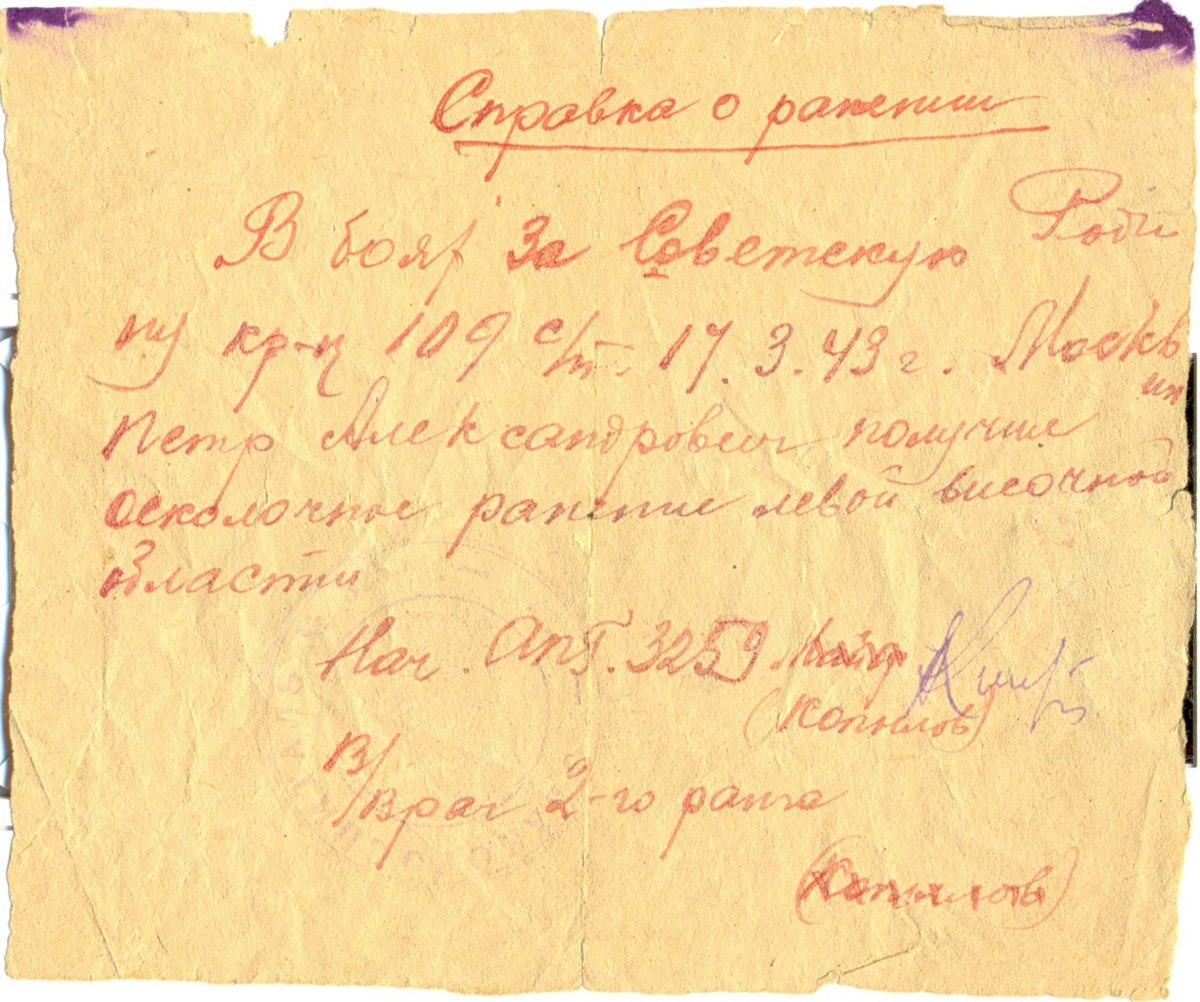 Справка о ранении
В боях за Советскую Роди
ну кр-ц 109 с/п. 17.3.43 г. Москв
ин
Петр Александрович получил
осколочное ранение левой височной
области
Нач. ЭПГ. 3259
(Копылов)
В/
Врач 2-го ранга
(Копылов)